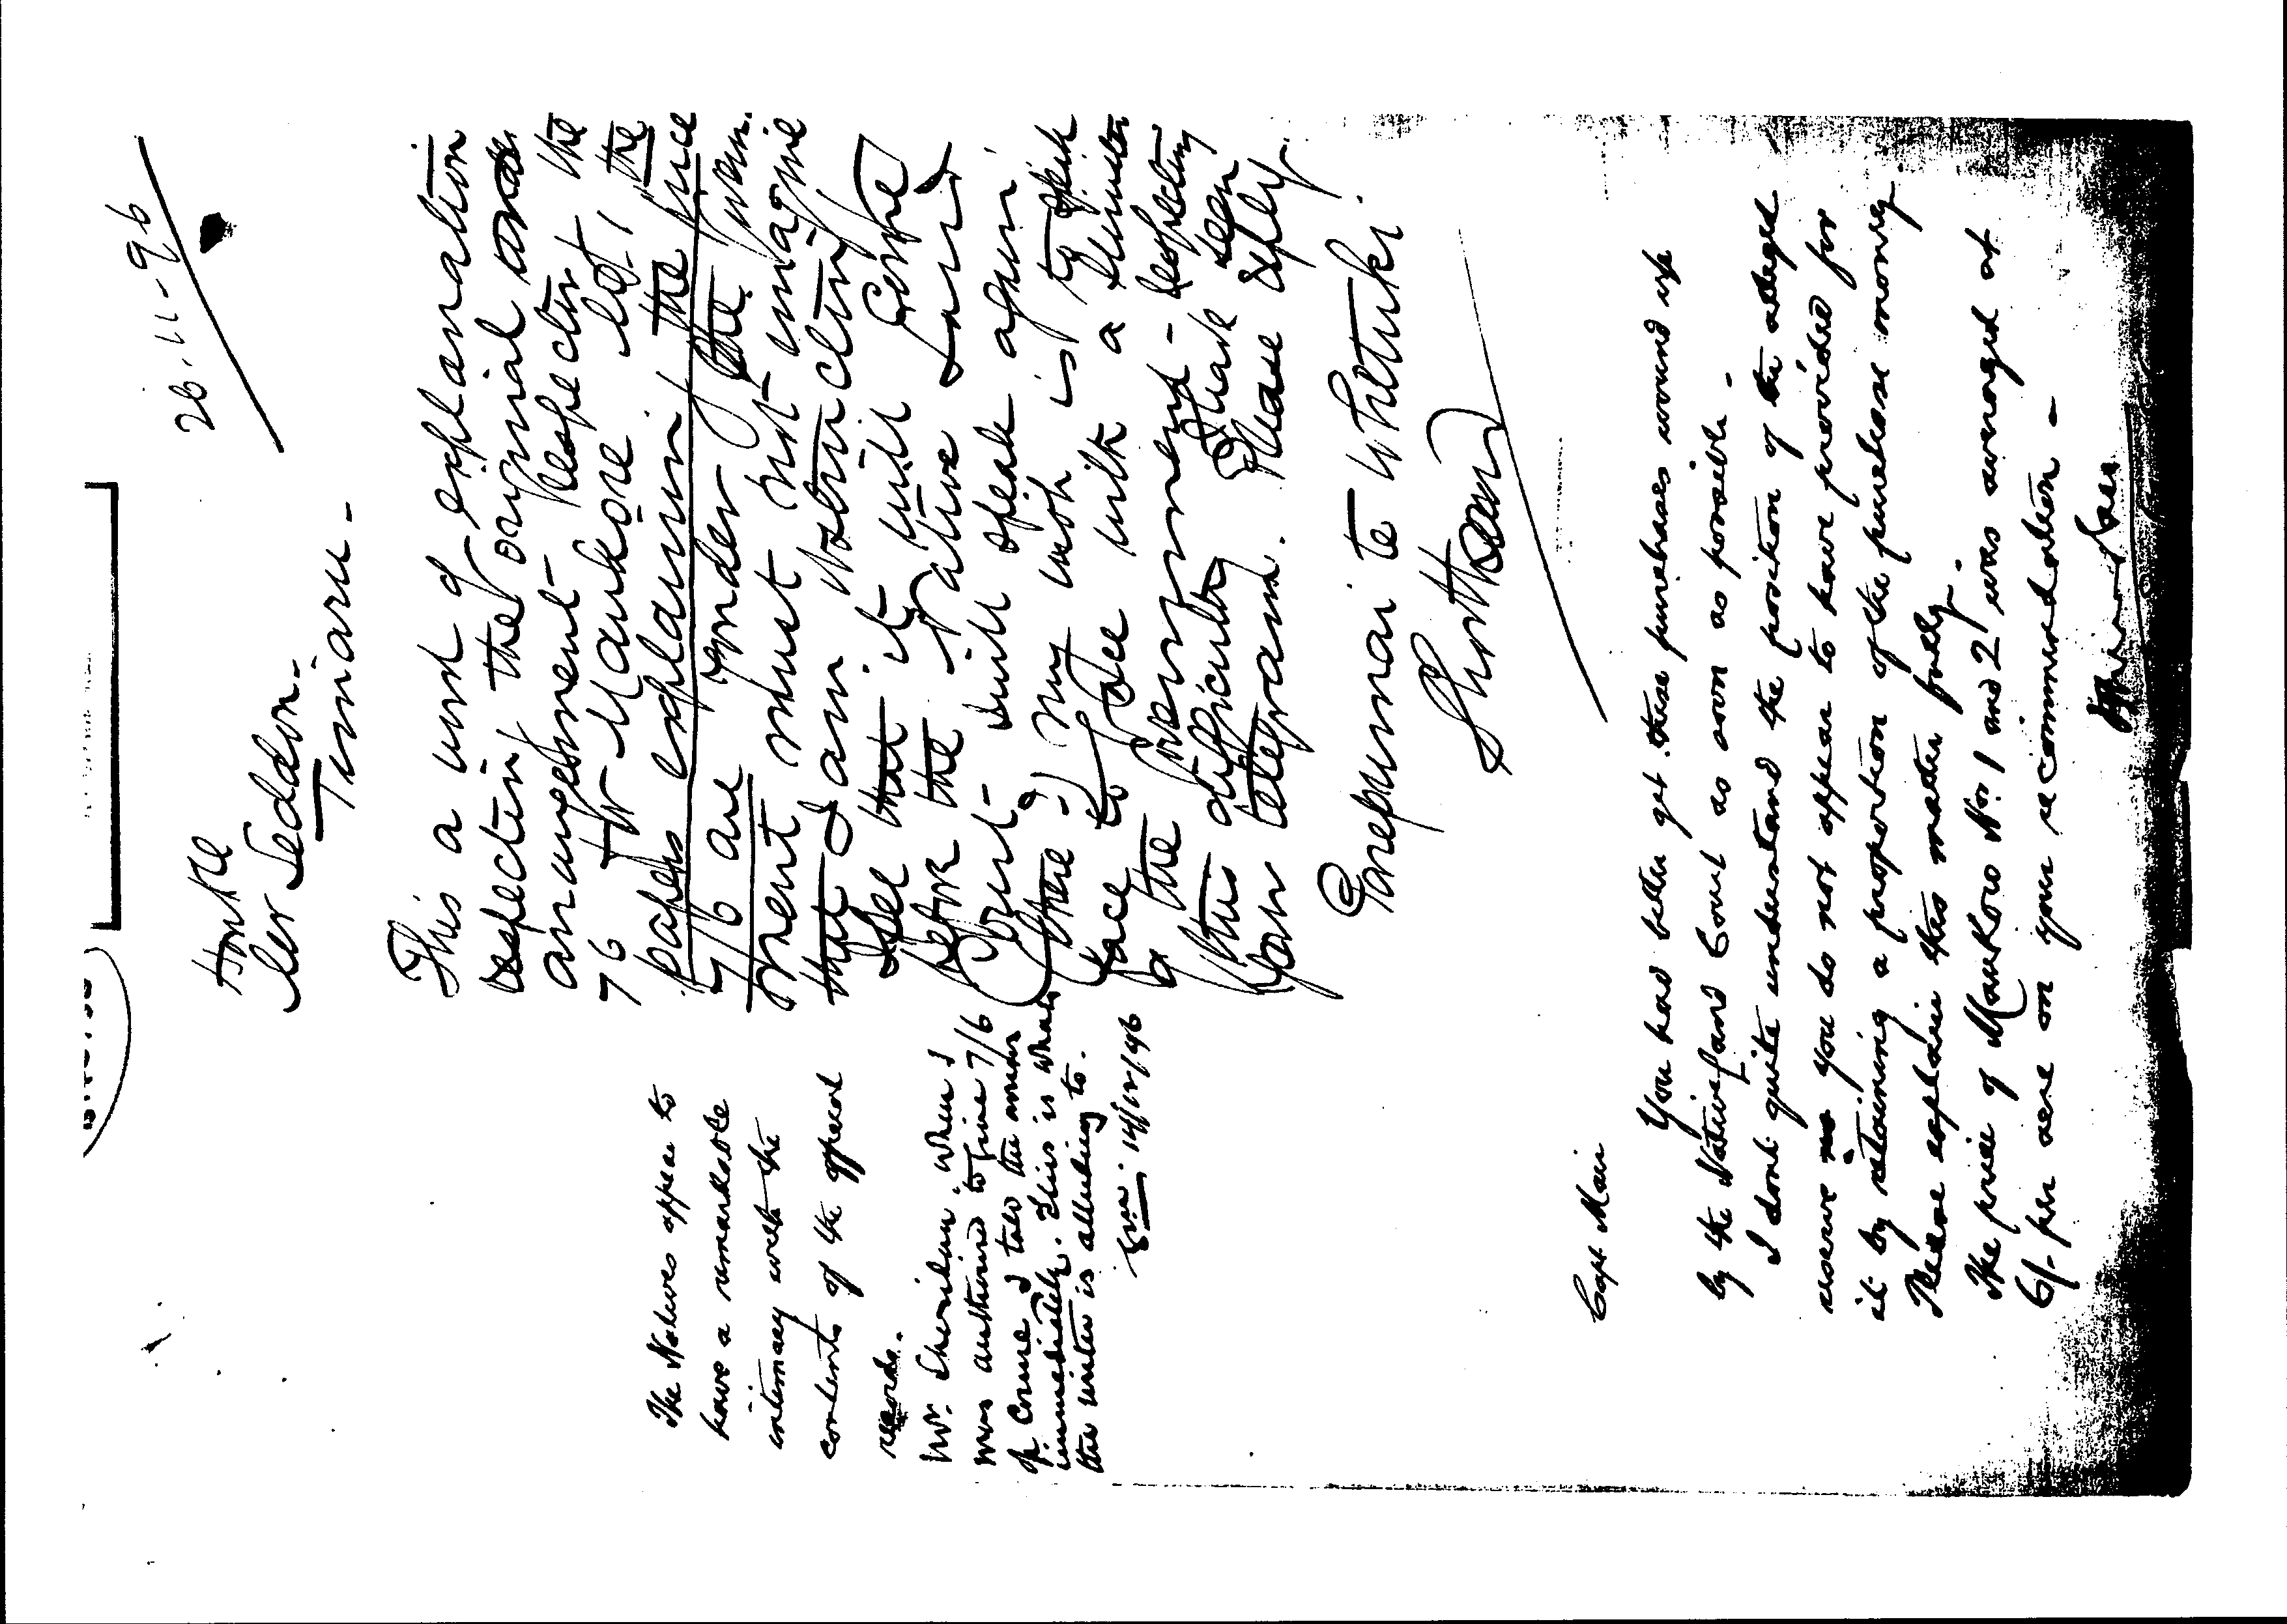 26.11.96
Honble
Mr Seddon.
Timaru -
This a word of explanation
respecting the original
arrangement - respecting the
76 for Maukoro No 1, the
papers explaining the price
7/6 are yonder, the Govern.
ment must not imagine
that I am
See that it will Come
before the Native Land
Court - will speak again
there -) my wish is to speak
face to face with a Minister
of the Government - respecting
this difficulty Have seen
your telegram. Please reply.
Parepumai te Whetuki.
Shorthand
The Natives appear to
have a remarkable
intimacy with the
contents of the
records.
Mr. Sheridan. When I
was authorised to give 7/6
of course I told the owners
immediately. This is what
the writer is alluding to.
14/12/96
Capt Mair
You had better get these purchases wound up
by the Native Land Court as soon as possible -
I dont quite understand the position of the alleged
reserve as you do not appear to have provided for
it by retaining a proportion of the purchase money.
Please explain this matter fully.
The price of Maukoro No. 1 and 2 was arranged at
6/- per acre on your recommendation -